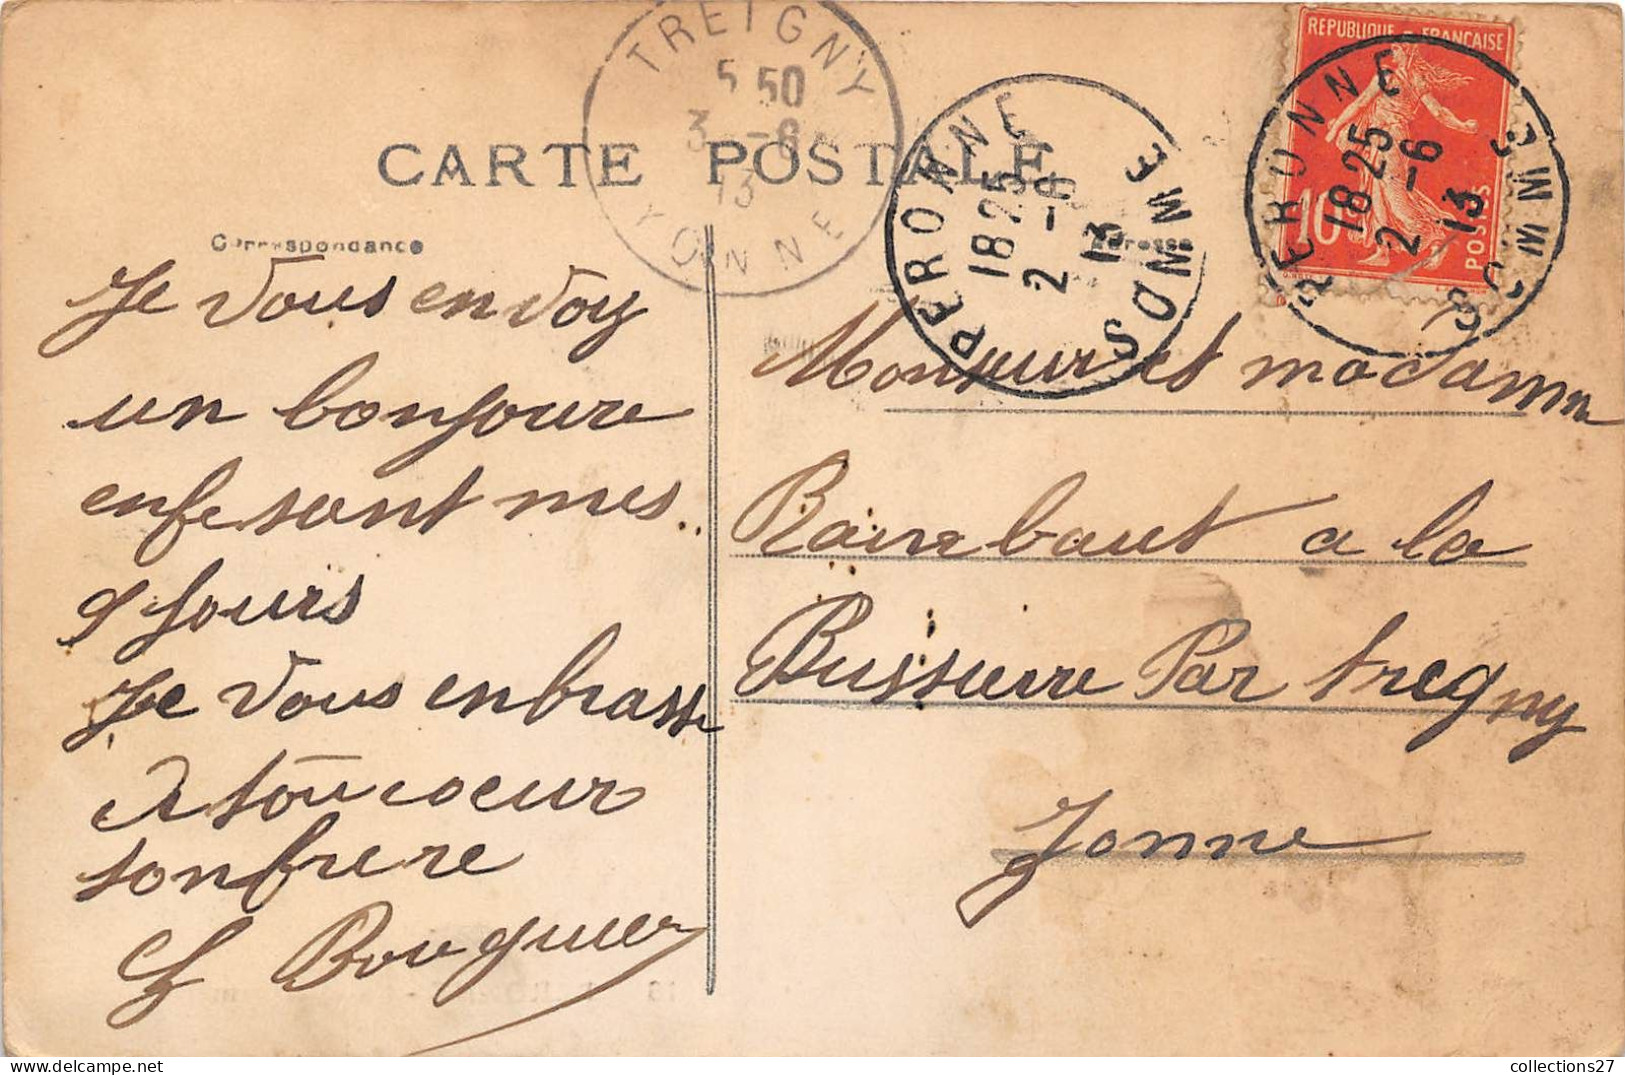 CARTE POSTALE
Correspondance
Adresse
TREIGNY
5 50
3 -6
13
YONNE
PERONNE
18 25
2 -6
13
SOMME
REPUBLIQUE - FRANÇAISE
10c
POSTES
PERONNE
18 25
2 -6
13
SOMME
Je Vous en Voy
un bonjoure
enfesant mes
9 Jours
Je Vous enbrasse
A tou coeur
ton frere
Bouguier
Monsieur et madame
Rainbaut a la
Bussierre Par tregny
Yonne
collections27